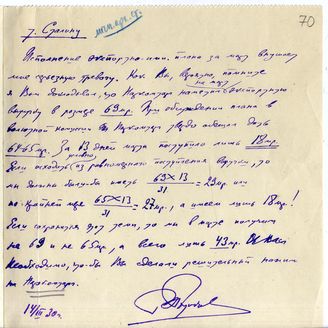 70
т. Сталину
Исполнение экспортно-имп. плана за март внушает
мне серьезную тревогу. Как Вы, помните
я Вам докладывал, что Наркомторг наметил на март экспортную
выручку в размере 69 мр. При обсуждении плана в
валютной комиссии Наркомторг обещал дать
64-65 мр. За 13 дней марта поступило лишь 18 мр.
Если исходить (условно) из равномерного поступления выручки, то
мы должны были бы иметь 69×13/31 = 29 мр. или
по крайней мере 65×13/31 = 27 мр., а имеем лишь 18 мр!
Если сохранится этот темп, то мы в марте получим
не 69 и не 65 мр, а всего лишь 43 мр.
Необходимо, что-бы Вы сделали решительный нажим
на Наркомторг.
14/III 30 г.